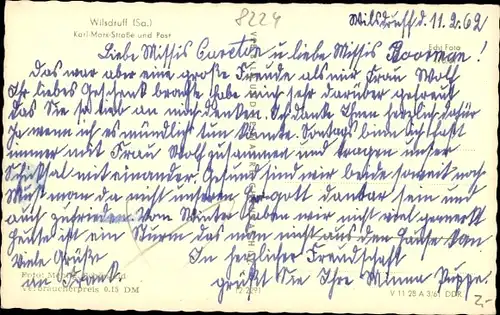 Wilsdruff (Sa.)
Karl-Marx-Straße und Post
8224
Wilsdruff d. 11.2.62
Echt Foto
Liebe Missis Careton u liebe Missis Boorman!
Das war aber eine große Freude als mir Frau Wolf
Ihr liebes Geschenk brachte habe mich sehr darüber gefreut
das Sie so lieb an mich denken. Ich danke Ihnen herzlich dafür
Ja wenn ich es mündlich tun könnte. Sonntags bin ich fast
immer mit Frau Wolf zusammen und tragen unser
Schiksal mit einander. Gesund sind wir beide soweit noch
Must man da nicht unseren Herrgott dankbar sein und
auch zufrieden. Vom Winter haben wir nicht viel gemerkt
heute ist ein Sturm das man nicht aus dem Hause kan
Viele Grüße
In herzlicher Freundschaft
an Frank
grüßt Sie Ihre Minna Puppe.
Foto:
Verbraucherpreis 0.15 DM
V 11 28 A 3/61 DDR
2,-